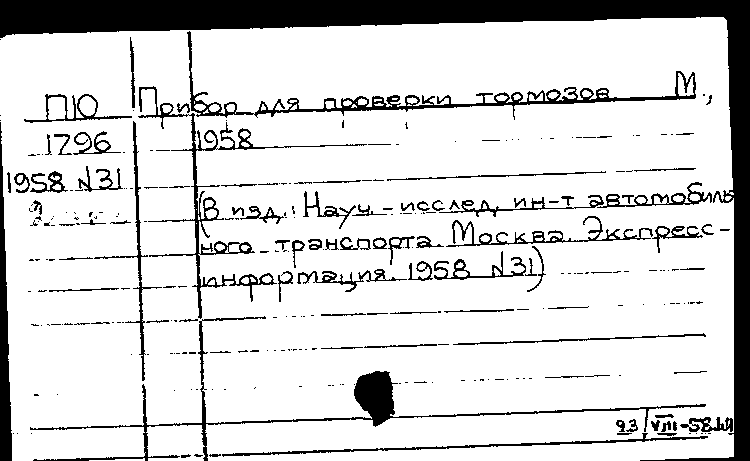 П10 Прибор для проверки тормозов. М.,
1796 1958
1958 N31
(В изд.: Науч.-исслед. ин-т автомобиль
ного транспорта. Москва. Экспресс-
информация. 1958 N31)
23/VIII-58